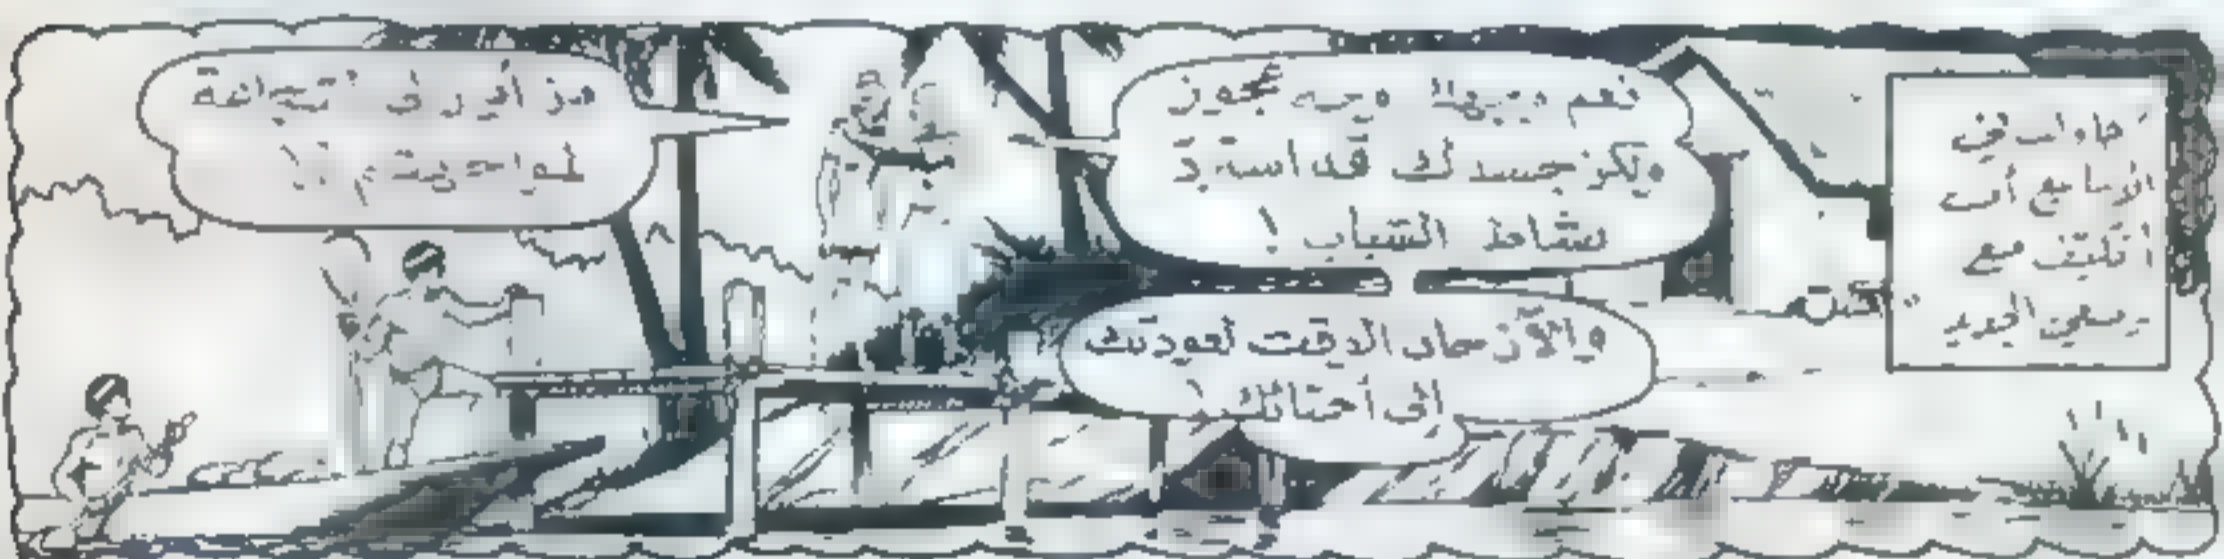 حاولت في
الأسابيع أن
أتكيّف مع
وضعي الجديد
نعم وجهك وجه عجوز
ولكن جسدك قد استردّ
نشاط الشباب !
والآن حان الوقت لعودتك
إلى أحبّائك !
هل أنا
لمواجهتهم ؟!